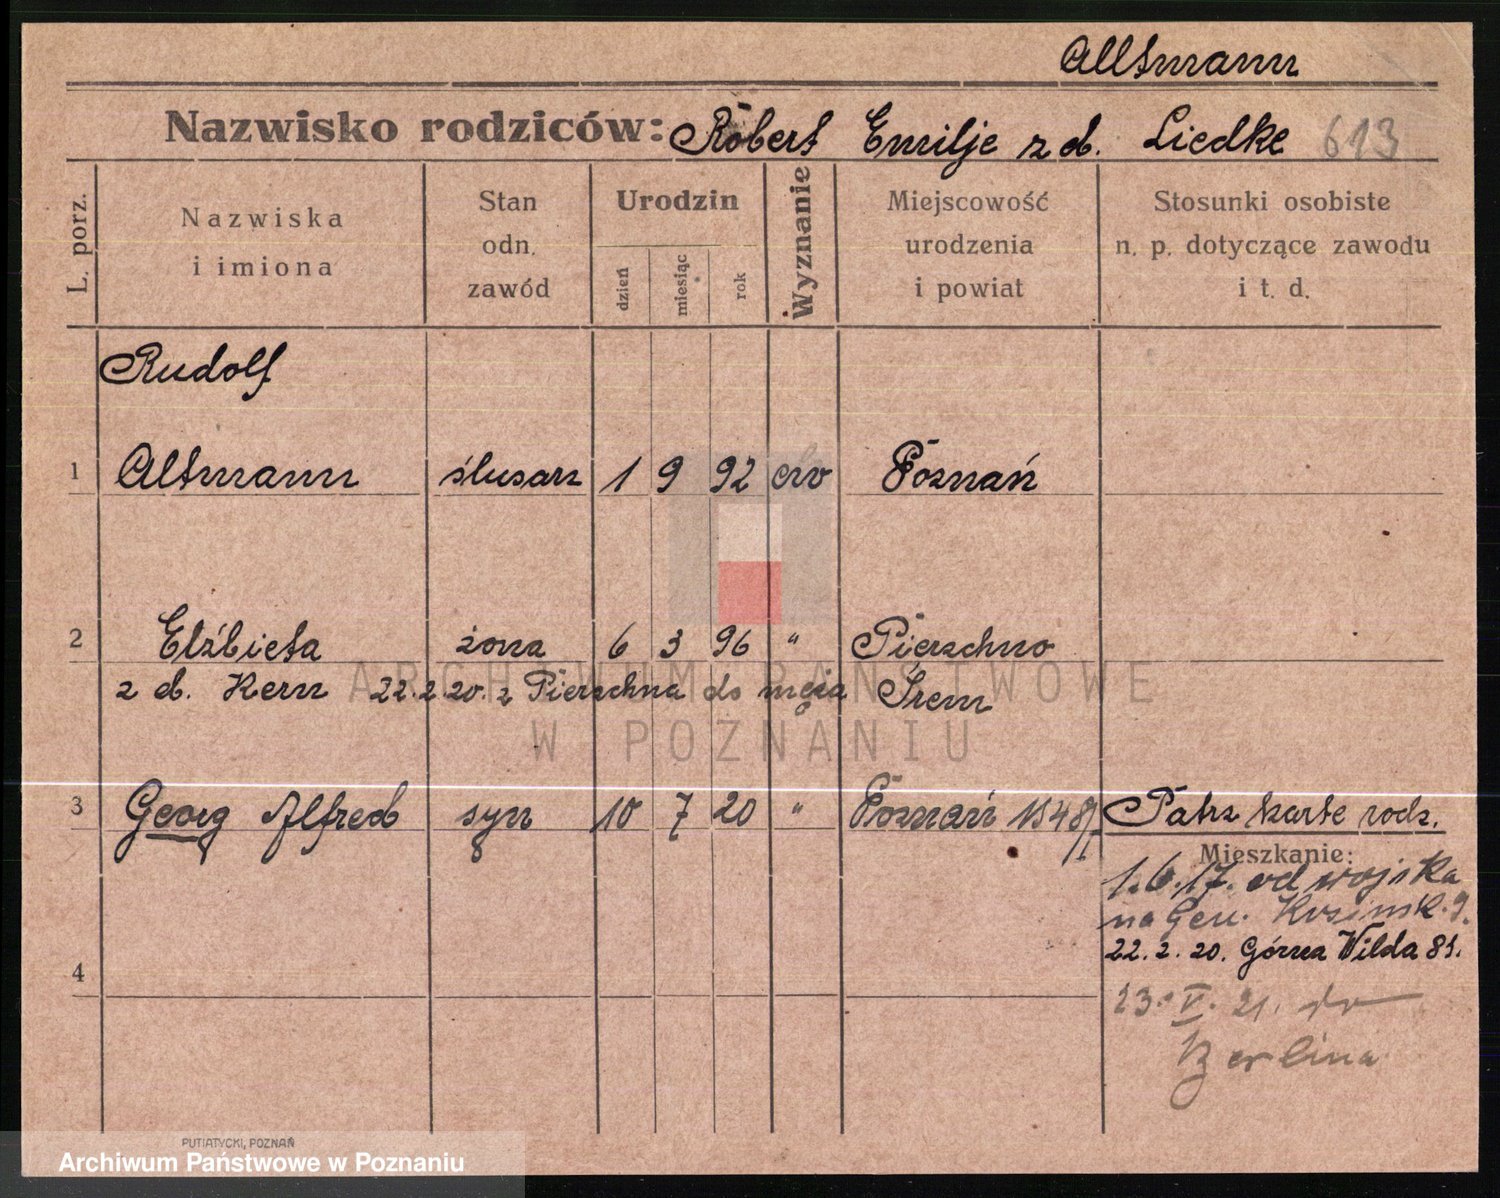 Altmann
Nazwisko rodziców: Robert Emilje z d. Liedke 613
L. porz.
Nazwiska
i imiona
Stan
odn.
zawód
Urodzin
dzień
miesiąc
rok
Wyznanie
Miejscowość
urodzenia
i powiat
Stosunki osobiste
n. p. dotyczące zawodu
i t. d.
Rudolf
1 Altmann ślusarz 1 9 92 ew Poznań
2 Elżbieta żona 6 3 96 " Pierzchno
z d. Kern 22.2.20. z Pierzchna do męża Śrem
ARCHIWUM PAŃSTWOWE
W POZNANIU
3 Georg Alfred syn 10 7 20 " Poznań 1548 Patrz karte rodz.
Mieszkanie:
1.6.17. od wojska
na Gen. 9.
22. 2. 20. Górna Wilda 81.
4
23. V. 21. do
Berlina
PUTIATYCKI, POZNAŃ
Archiwum Państwowe w Poznaniu